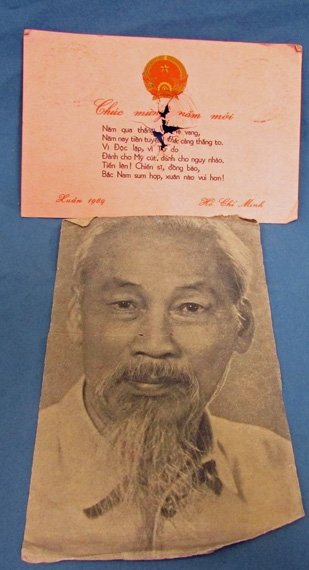 Chúc mừng năm mới
Năm qua thắng vang,
Năm nay tiền tuyến chắc càng thắng to.
Vì Độc lập, vì Tự do
Đánh cho Mỹ cút, đánh cho ngụy nhào.
Tiến lên! Chiến sĩ, đồng bào,
Bắc Nam sum họp, xuân nào vui hơn!
Xuân 1969
Hồ Chí Minh